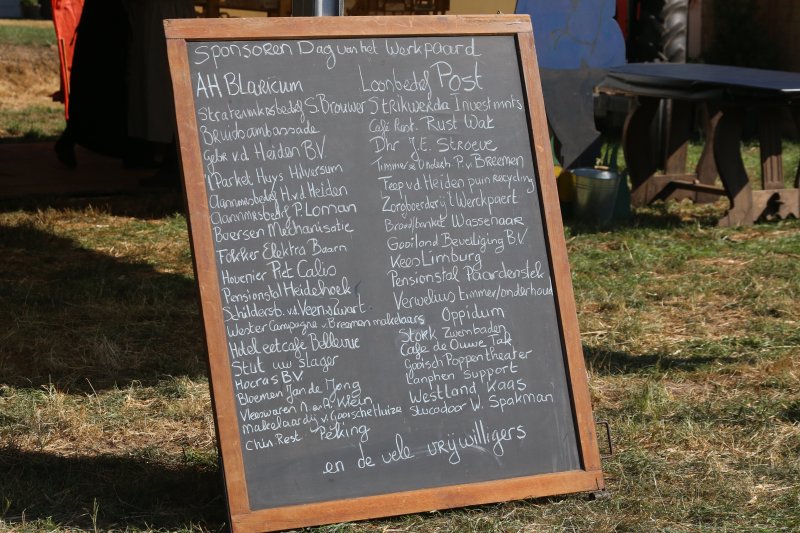 Sponsoren Dag van het Werkpaard
AH Blaricum
Stratenmkrsbedrijf S. Brouwer
Bruidsambassade
Gebr v.d Heiden BV.
't Parket Huys Hilversum
Aannmsbedrijf H. v.d Heiden
Aannmrsbedrijf P. Loman
Boersen Mechanisatie
Fokker Elektra Baarn
Hovenier Piet Calis
Pensionstal Heidehoek
Schildersb. v.d. Veen & Zwart
Wester Campagne v. Breemen makelaars
Hotel eetcafé Bellevue
Stut uw slager
Hooras BV
Bloemen Jan de Jong
Vleeswaren N. en A. Klein
Makelaardij v. Gooische Huize
Chin. Rest. Peking
Loonbedrijf Post
Strikwerda Investmnts
Café Rest. Rust Wat
Dhr J.E. Stroeve
Timmer & Onderh. P. v. Breemen
Teus v.d Heiden puin recycling
Zorgboerderij 't Werkpaert
Brood/banket Wassenaar
Gooiland Beveiliging BV
Kees Limburg
Pensionstal Paardenstek
Verwelius timmer/onderhoud
Oppidum
Stork Zwembaden
Café de Ouwe Tak
Gooisch Poppentheater
Lanphen Support
Westland Kaas
Stucadoor W. Spakman
en de vele vrijwilligers